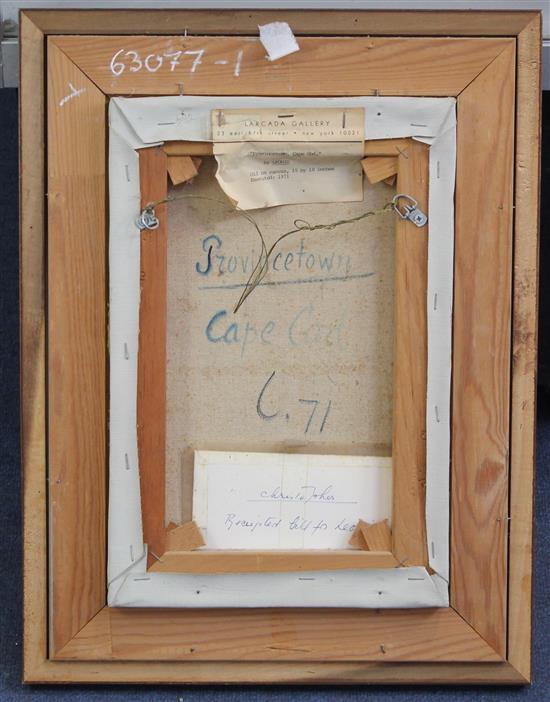 63077-1
LARCADA GALLERY
23 east 67th street • new york 10021
"Provincetown, Cape Cod,"
by
Oil on canvas, 15 by 18 inches
Executed: 1971
Provincetown
Cape Cod
C. 71
Christopher
Receipted bill for